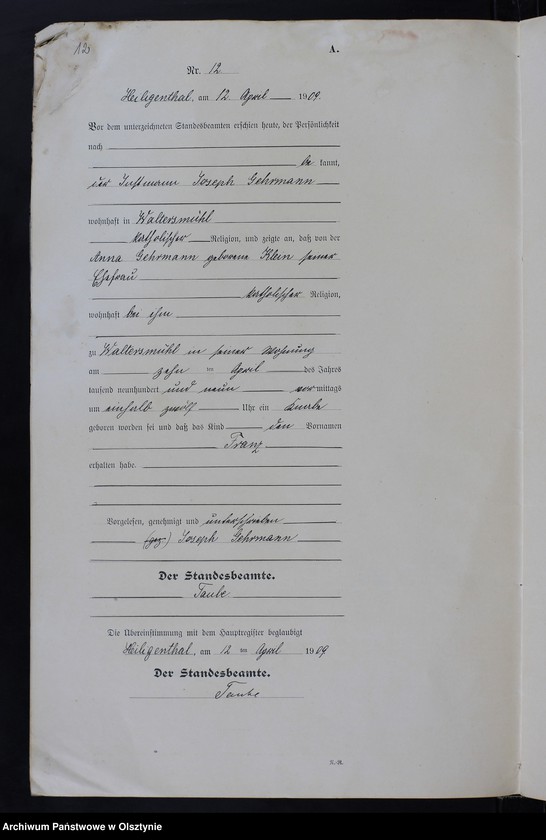 12
A.
Nr. 12
Heiligenthal, am 12. April 1909.
Vor dem unterzeichneten Standesbeamten erschien heute, der Persönlichkeit
nach
be kannt,
der Instmann Joseph Gehrmann
wohnhaft in Waltersmühl
katholischer Religion, und zeigte an, daß von der
Anna Gehrmann geborene Klein seiner
Ehefrau
katholischer Religion,
wohnhaft bei ihm
zu Waltersmühl in seiner Wohnung
am zehn ten April des Jahres
tausend neunhundert und neun vor mittags
um einhalb zwölf Uhr ein Knabe
geboren worden sei und daß das Kind den Vornamen
Franz
erhalten habe.
Vorgelesen, genehmigt und unterschrieben
(gez) Joseph Gehrmann
Der Standesbeamte.
Taube
Die Übereinstimmung mit dem Hauptregister beglaubigt
Heiligenthal, am 12 ten April 1909
Der Standesbeamte.
Taube
K.-R.
Archiwum Państwowe w Olsztynie